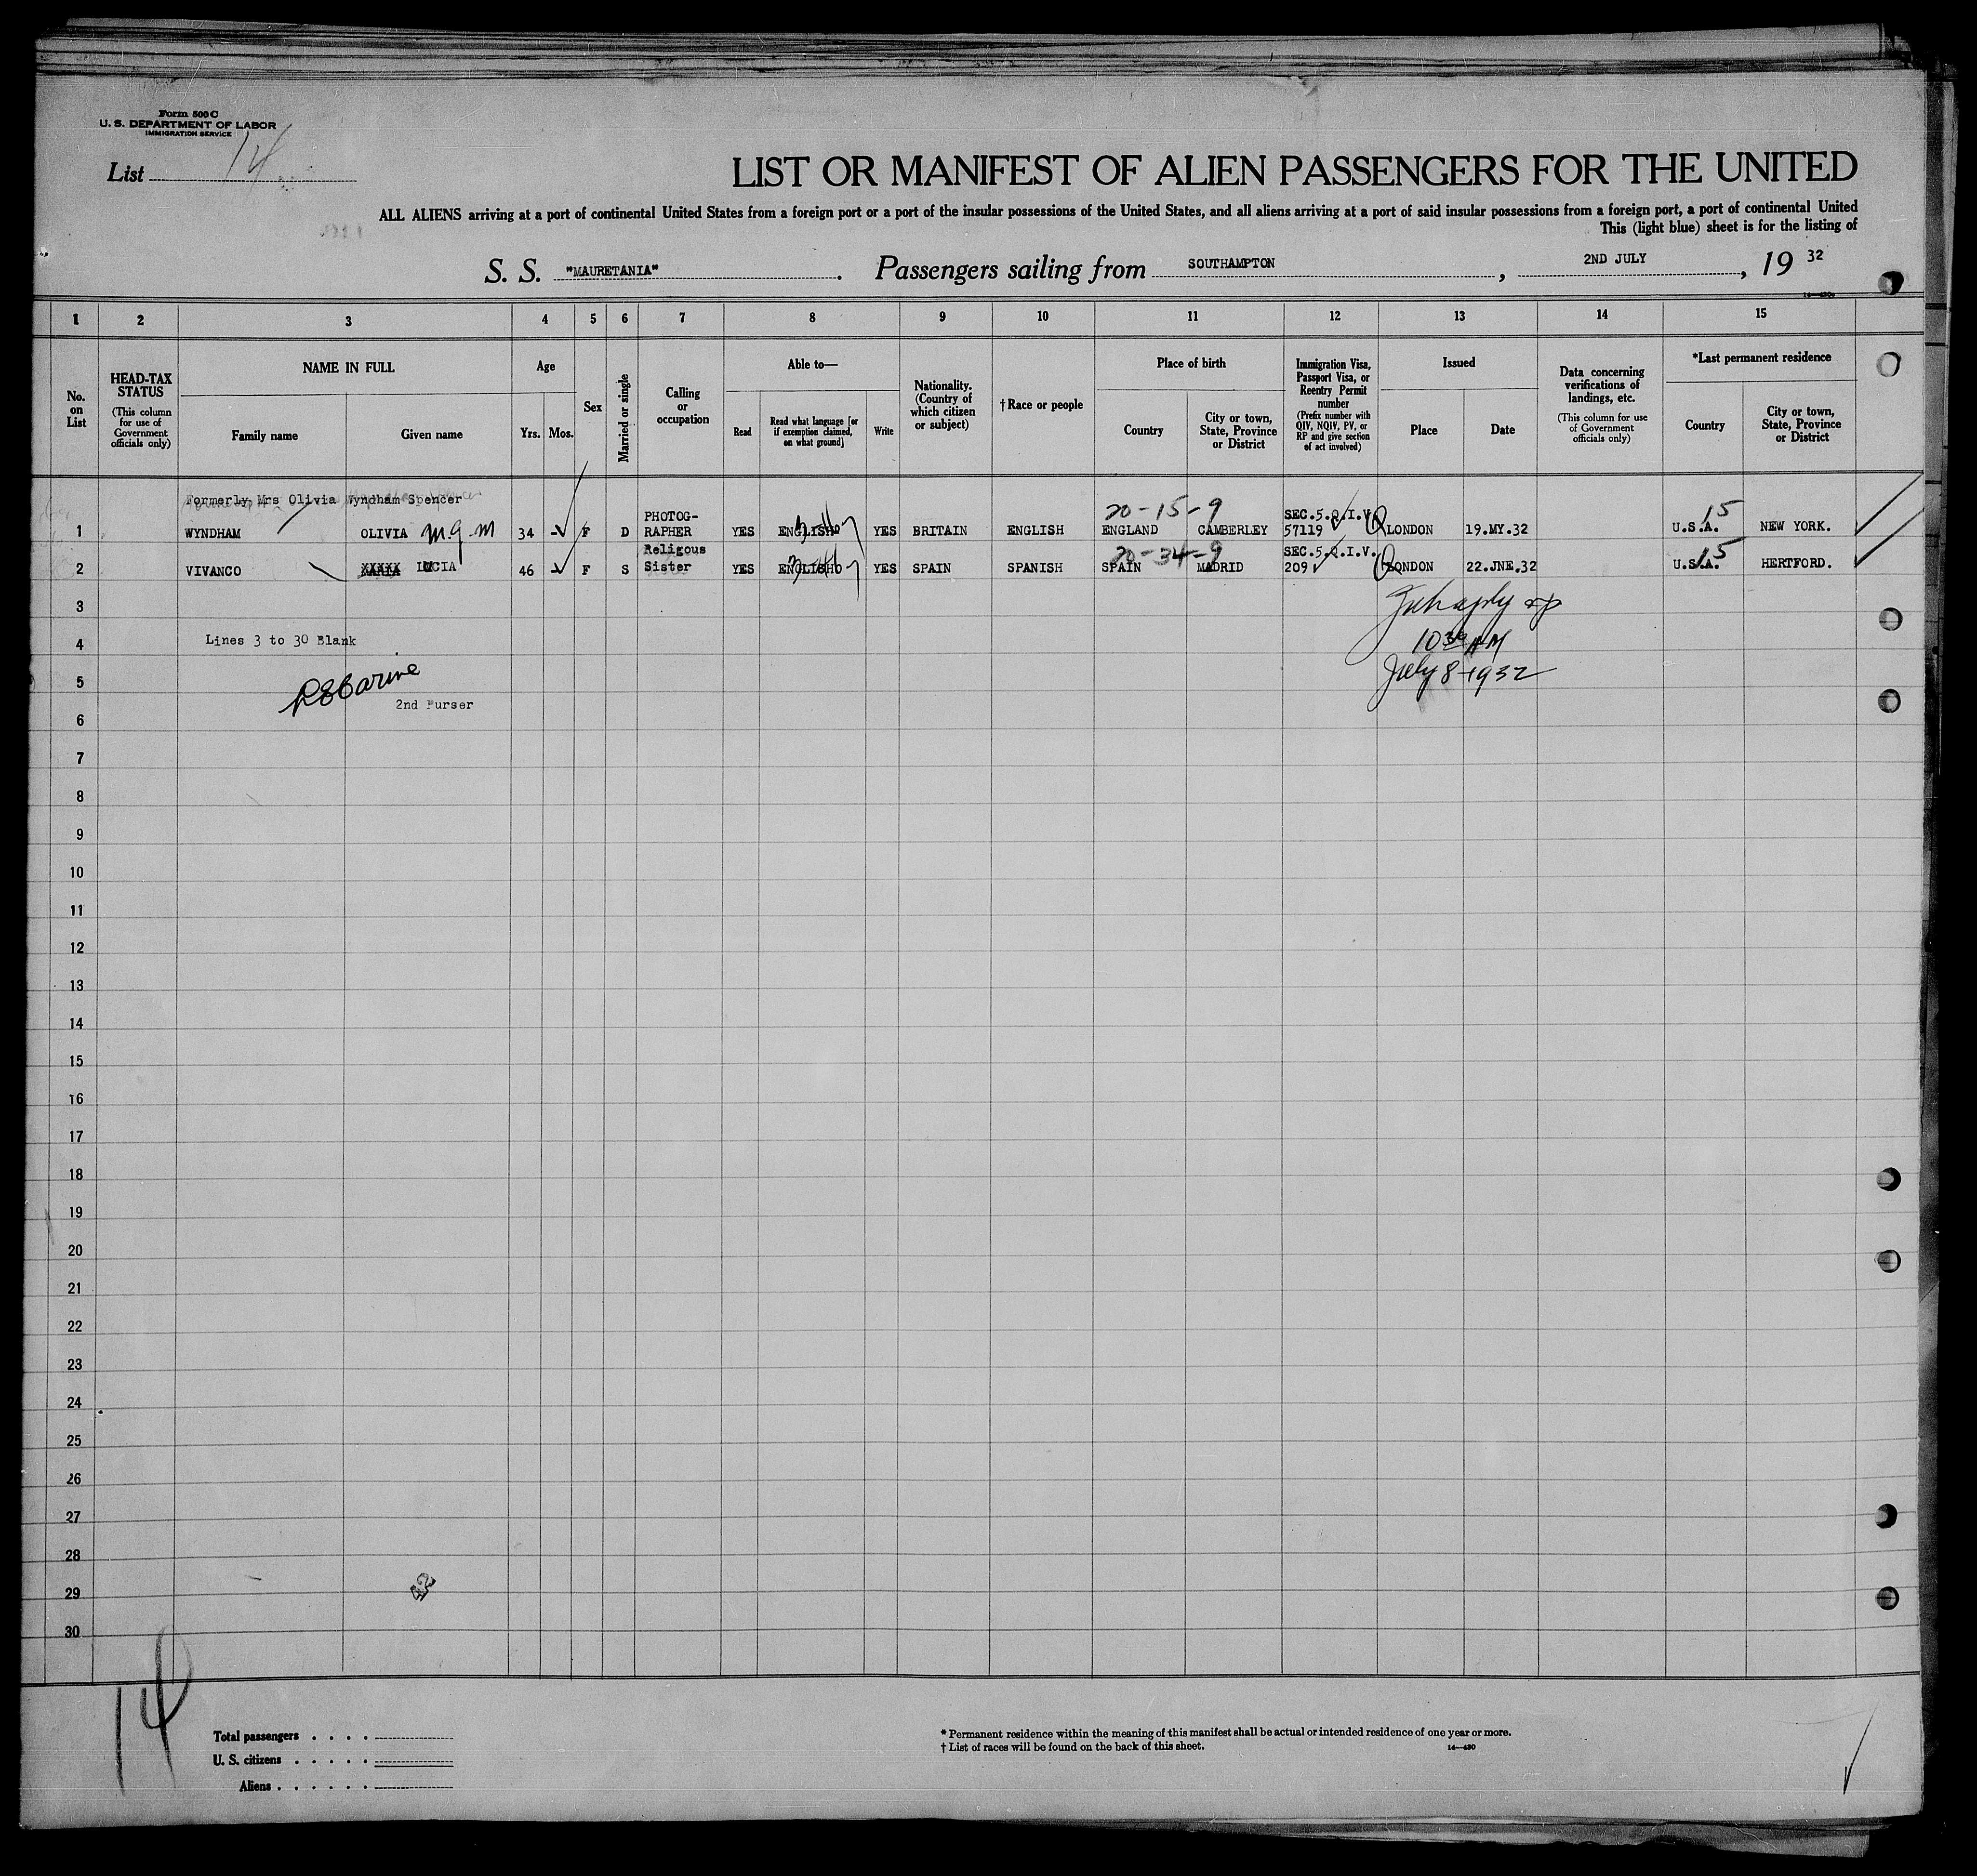 Form 500 C
U. S. DEPARTMENT OF LABOR
IMMIGRATION SERVICE
List 14
LIST OR MANIFEST OF ALIEN PASSENGERS FOR THE UNITED
ALL ALIENS arriving at a port of continental United States from a foreign port or a port of the insular possessions of the United States, and all aliens arriving at a port of said insular possessions from a foreign port, a port of continental United
This (light blue) sheet is for the listing of
S. S. "MAURETANIA". Passengers sailing from SOUTHAMPTON, 2ND JULY, 19 32
1 2 3 4 5 6 7 8 9 10 11 12 13 14 15
No. on List
HEAD-TAX STATUS (This column for use of Government officials only)
NAME IN FULL
Family name
Given name
Age
Yrs.
Mos.
Sex
Married or single
Calling or occupation
Able to—
Read
Read what language [or if exemption claimed, on what ground]
Write
Nationality. (Country of which citizen or subject)
† Race or people
Place of birth
Country
City or town, State, Province or District
Immigration Visa, Passport Visa, or Reentry Permit number (Prefix number with QIV, NQIV, PV, or RP and give section of act involved)
Issued
Place
Date
Data concerning verifications of landings, etc. (This column for use of Government officials only)
*Last permanent residence
Country
City or town, State, Province or District
Formerly Mrs Olivia Wyndham Spencer
20-15-9
15
1 WYNDHAM OLIVIA M.G.M 34 - F D PHOTOG-RAPHER YES ENGLISH YES BRITAIN ENGLISH ENGLAND CAMBERLEY SEC.5.Q.I.V. 57119 LONDON 19.MY.32 U.S.A. NEW YORK.
20-34-9
15
2 VIVANCO LUCIA 46 - F S Religous Sister YES ENGLISH YES SPAIN SPANISH SPAIN MADRID SEC.5.Q.I.V. 209 LONDON 22.JNE.32 U.S.A. HERTFORD.
3
4 Lines 3 to 30 Blank
10 30 AM
5 July 8-1932
2nd Purser
6
7
8
9
10
11
12
13
14
15
16
17
18
19
20
21
22
23
24
25
26
27
28
29
30
14
Total passengers . . . .
U. S. citizens . . . . .
Aliens . . . . . .
* Permanent residence within the meaning of this manifest shall be actual or intended residence of one year or more.
† List of races will be found on the back of this sheet.
14—430